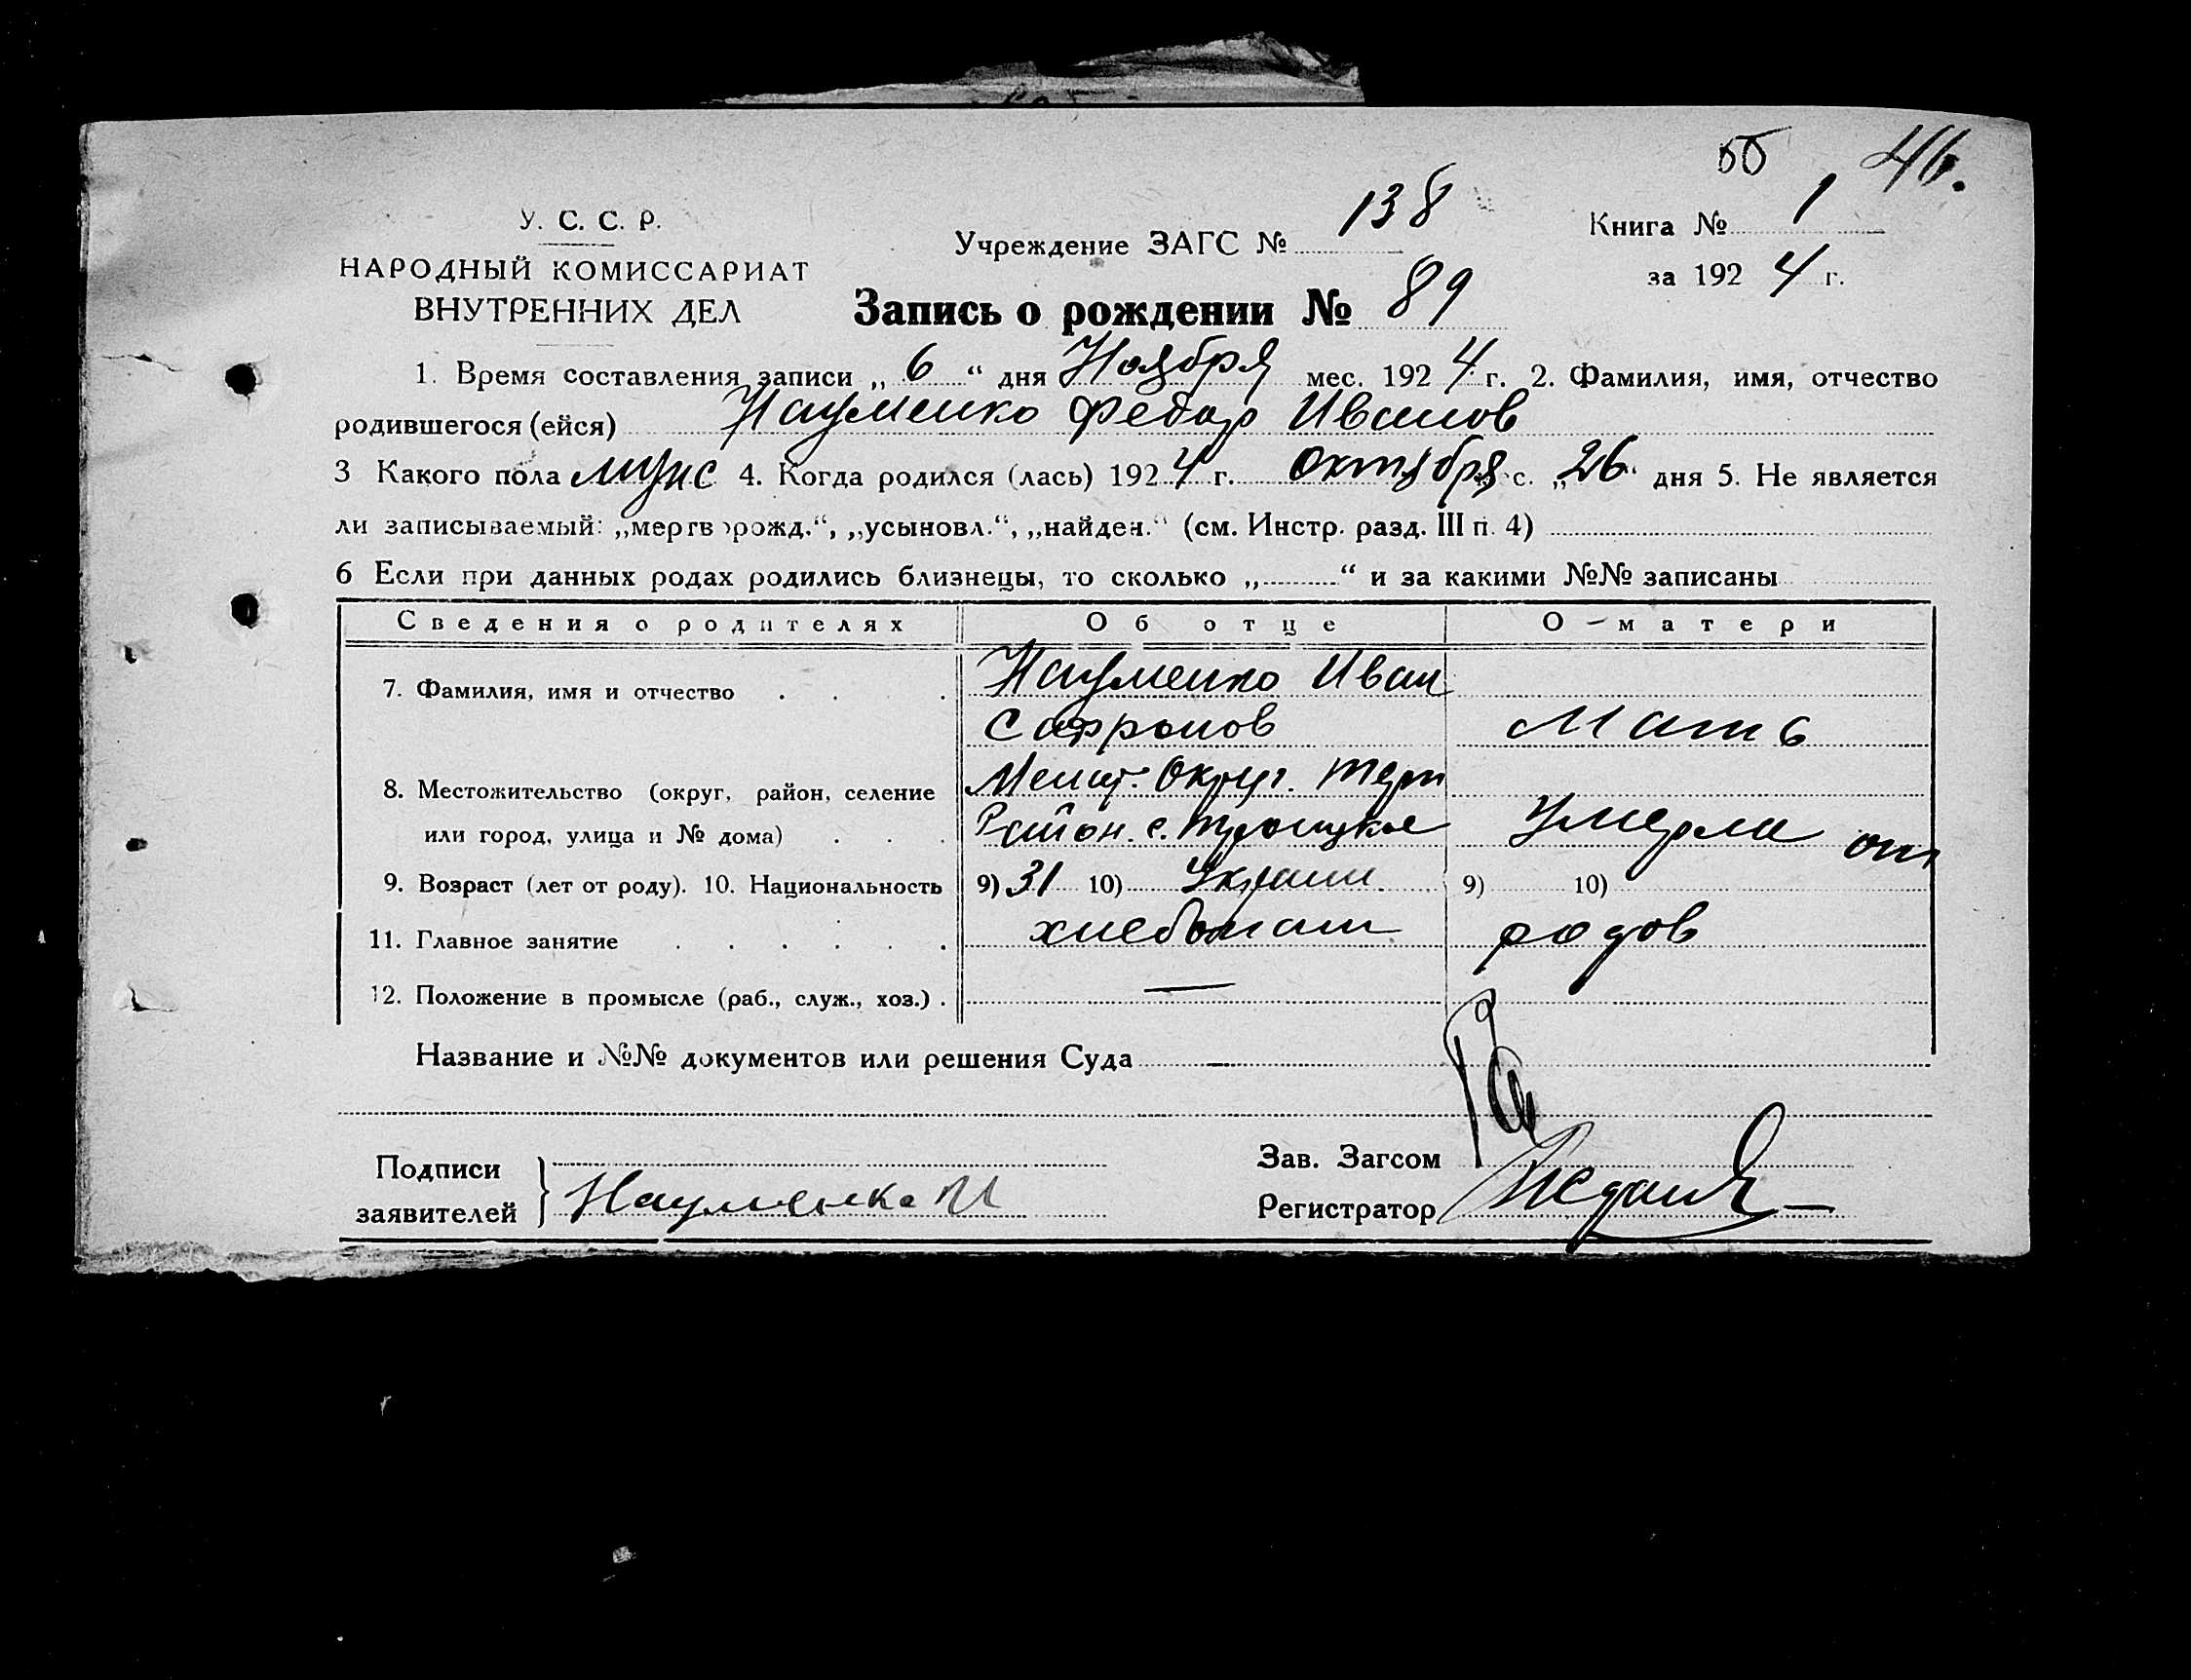 55 46.
У. С. С. Р.
НАРОДНЫЙ КОМИССАРИАТ
ВНУТРЕННИХ ДЕЛ
Учреждение ЗАГС № 138
Книга № 1
за 192 4 г.
Запись о рождении № 89
1. Время составления записи „ 6 “ дня Ноября мес. 192 4 г. 2. Фамилия, имя, отчество
родившегося (ейся) Науменко Федор Иванов
3 Какого пола мужс 4. Когда родился (лась) 192 4 г. Октября с. „ 26 “ дня 5. Не является
ли записываемый: „мертворожд.“, „усыновл.“, „найден.“ (см. Инстр. разд. III п. 4)
6 Если при данных родах родились близнецы, то сколько „ “ и за какими №№ записаны
Сведения о родителях Об отце О матери
7. Фамилия, имя и отчество Науменко Иван
Сафронов Мать
8. Местожительство (округ, район, селение Мелит. Округ. Терп
или город, улица и № дома) Район. с. Троицкое Умерла от
9. Возраст (лет от роду). 10. Национальность 9) 31 10) Украин. 9) 10)
11. Главное занятие хлебопаш родов
12. Положение в промысле (раб., служ., хоз.) . —
Название и №№ документов или решения Суда —
Подписи
заявителей Науменко И
Зав. Загсом
Регистратор